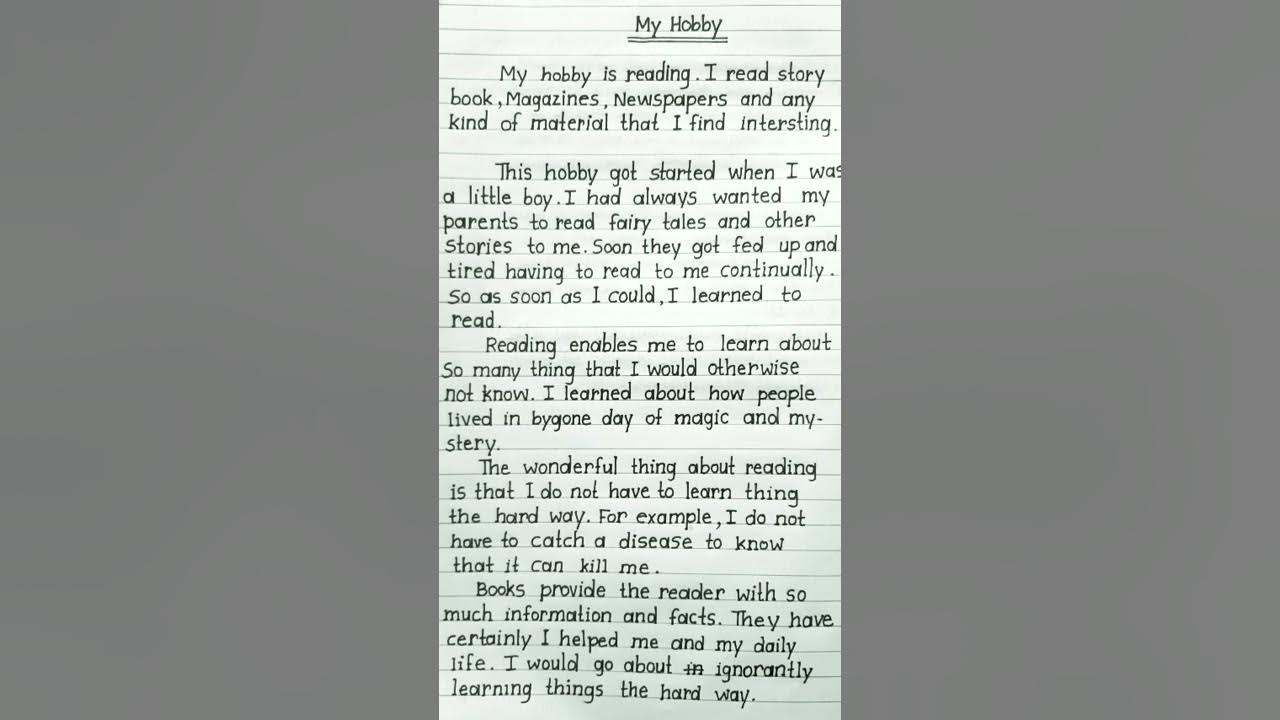 My Hobby
My hobby is reading. I read story
book, Magazines, Newspapers and any
kind of material that I find intersting.
This hobby got started when I was
a little boy. I had always wanted my
parents to read fairy tales and other
stories to me. Soon they got fed up and
tired having to read to me continually.
So as soon as I could, I learned to
read.
Reading enables me to learn about
So many thing that I would otherwise
not know. I learned about how people
lived in bygone day of magic and my-
stery.
The wonderful thing about reading
is that I do not have to learn thing
the hard way. For example, I do not
have to catch a disease to know
that it can kill me.
Books provide the reader with so
much information and facts. They have
certainly I helped me and my daily
life. I would go about in ignorantly
learning things the hard way.